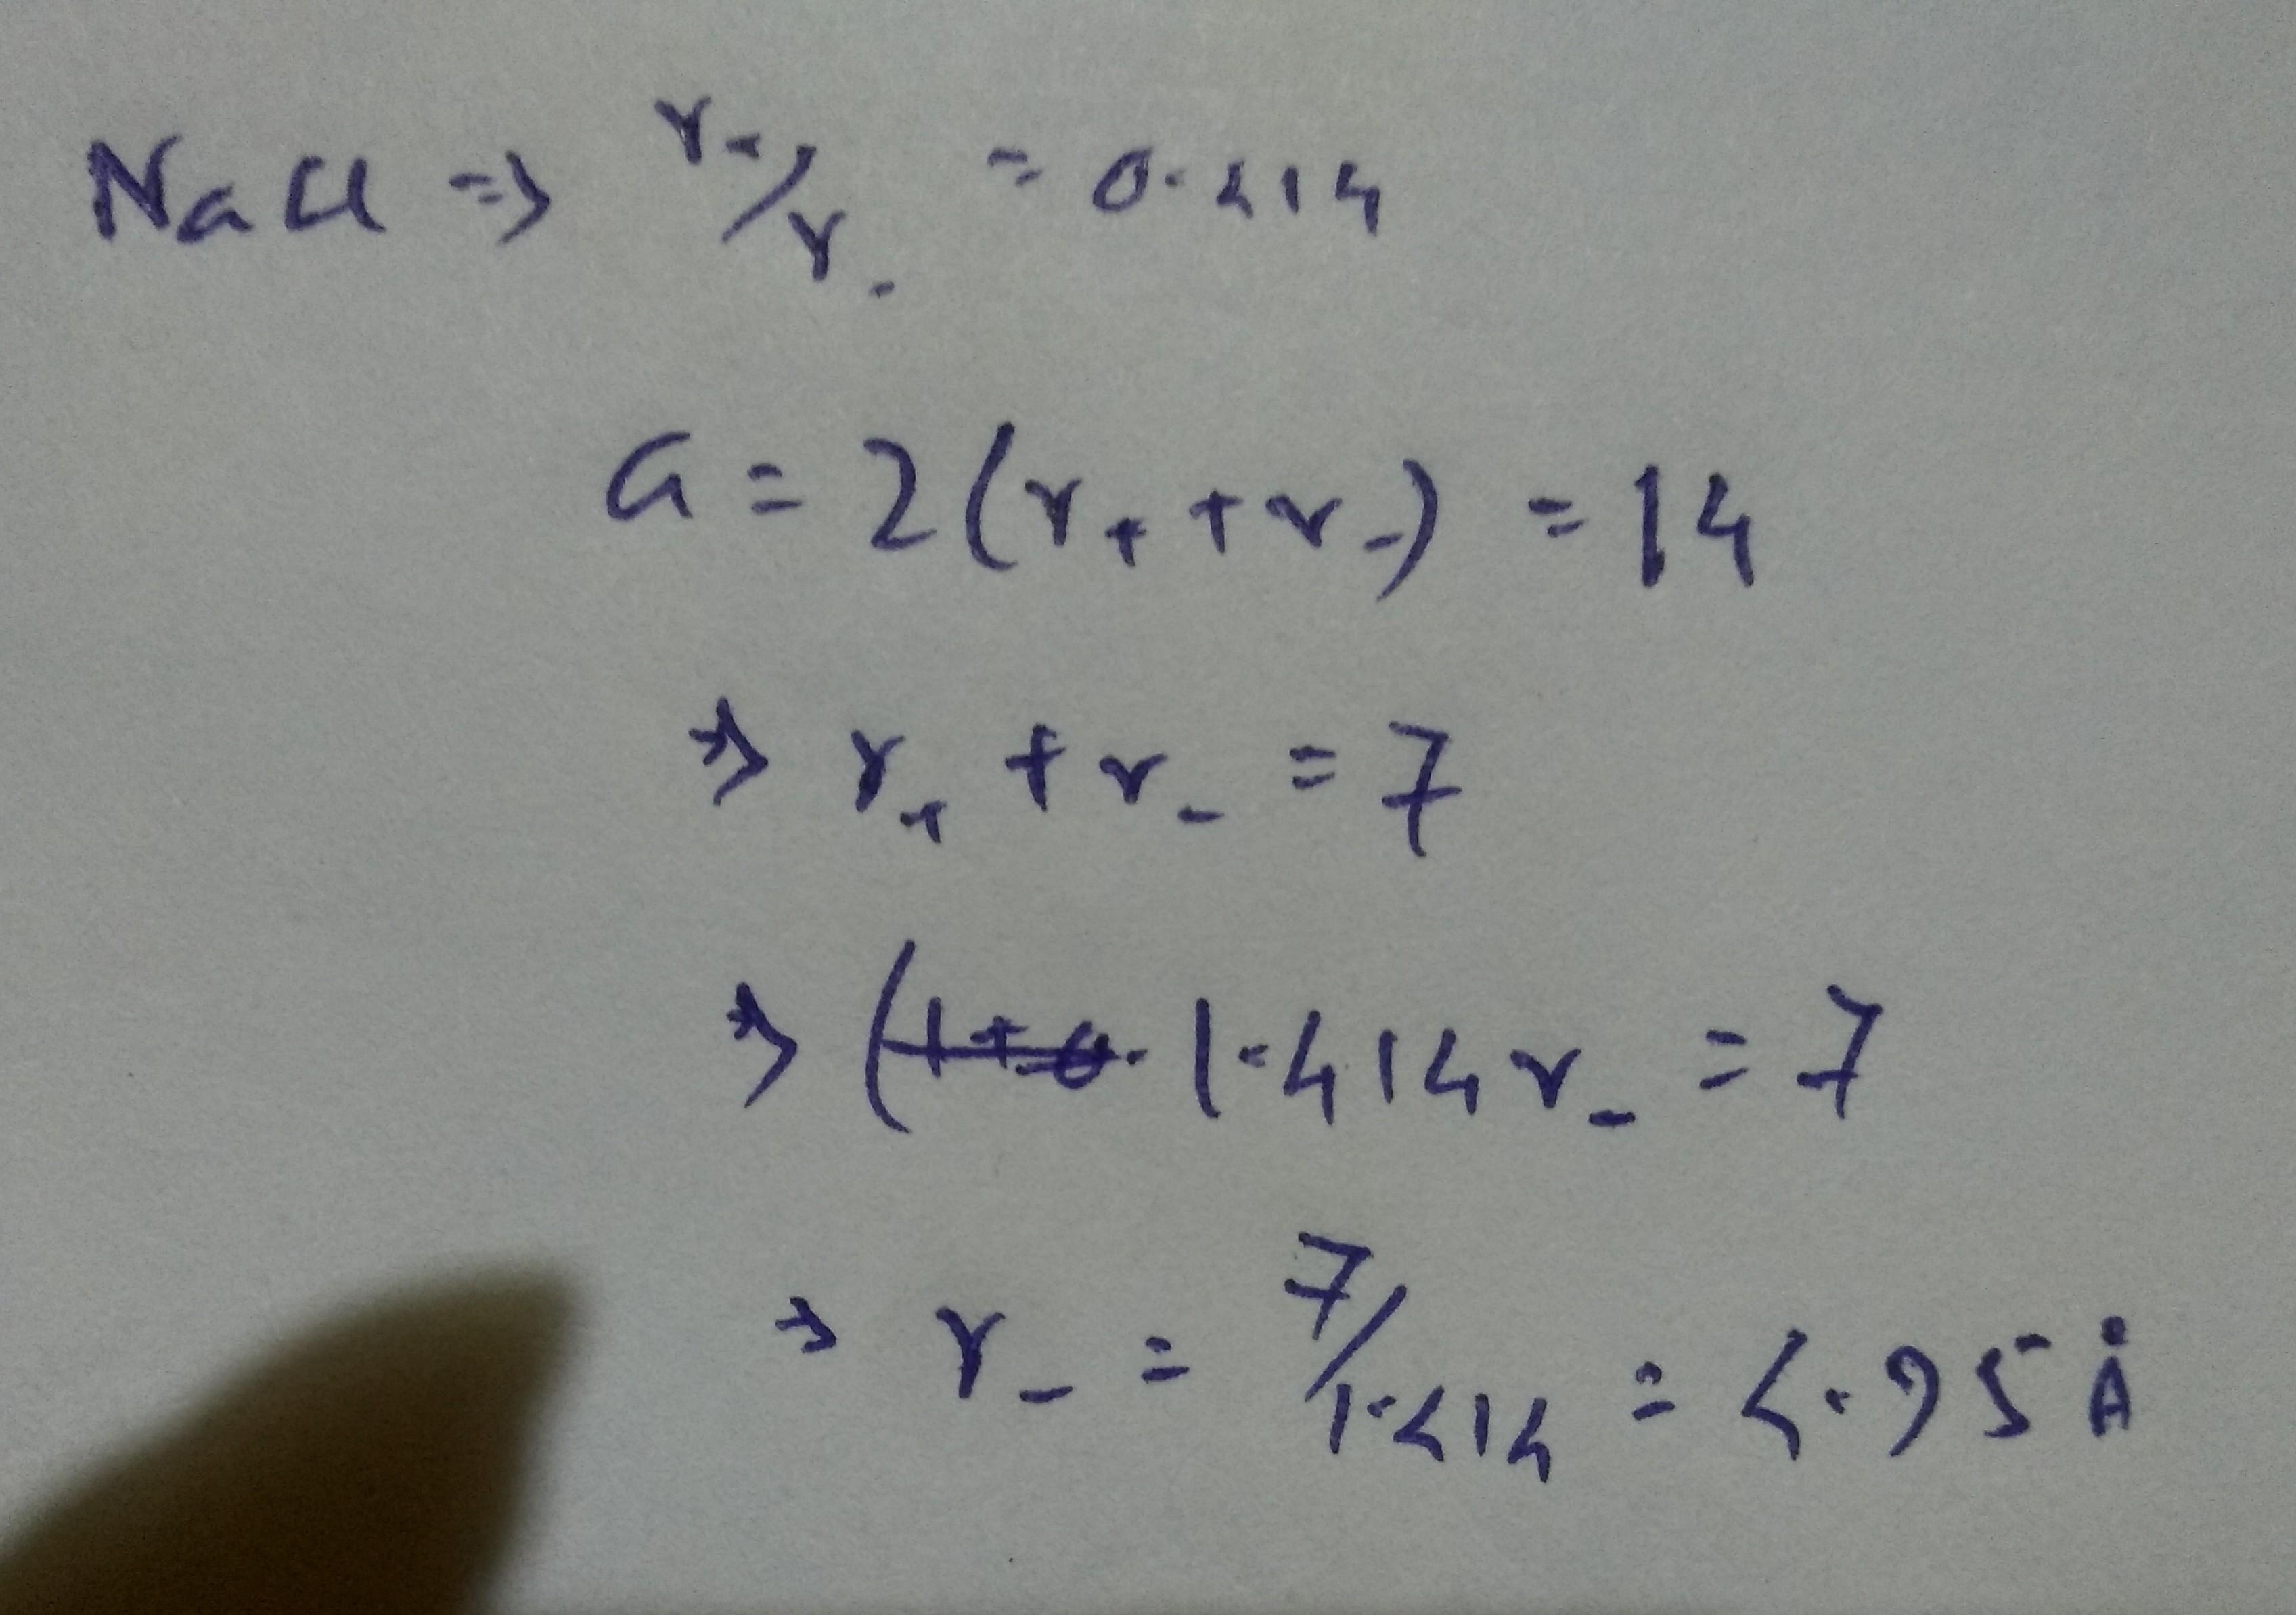 NaCl ⇒ r₊/r₋ = 0.414
a = 2(r₊ + r₋) = 14
⇒ r₊ + r₋ = 7
⇒ 1.414 r₋ = 7
⇒ r₋ = 7/1.414 = 4.95 Å